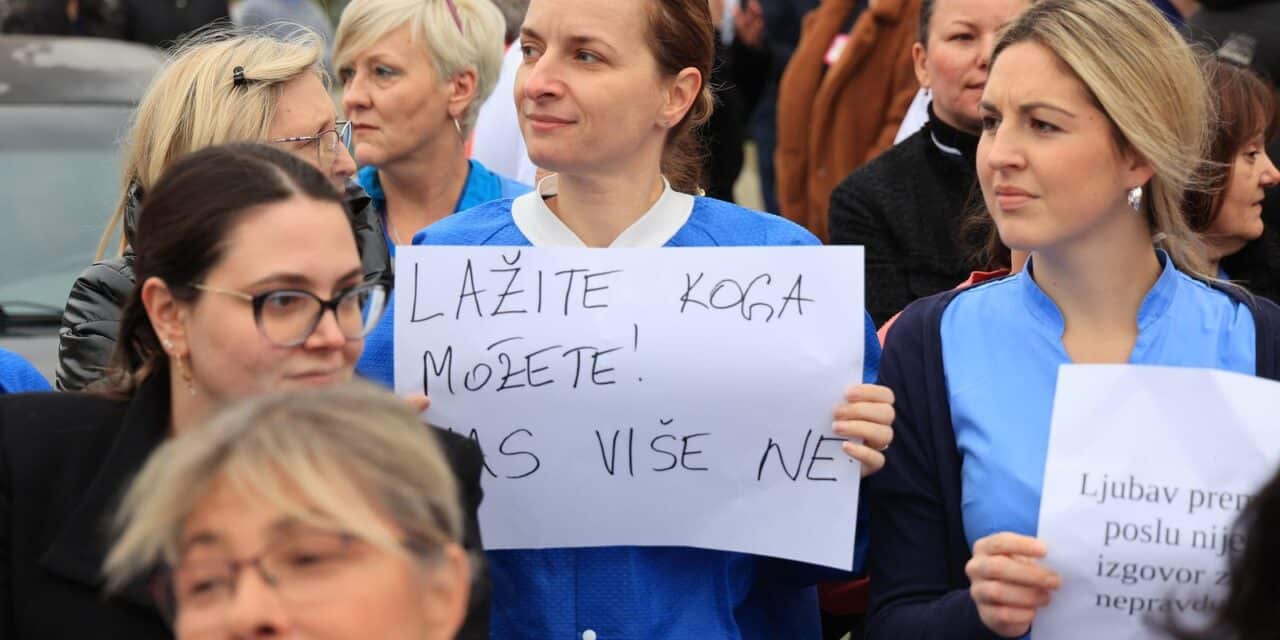 LAŽITE KOGA
MOŽETE!
NAS VIŠE NE
Ljubav prem
poslu nije
izgovor z
nepravd